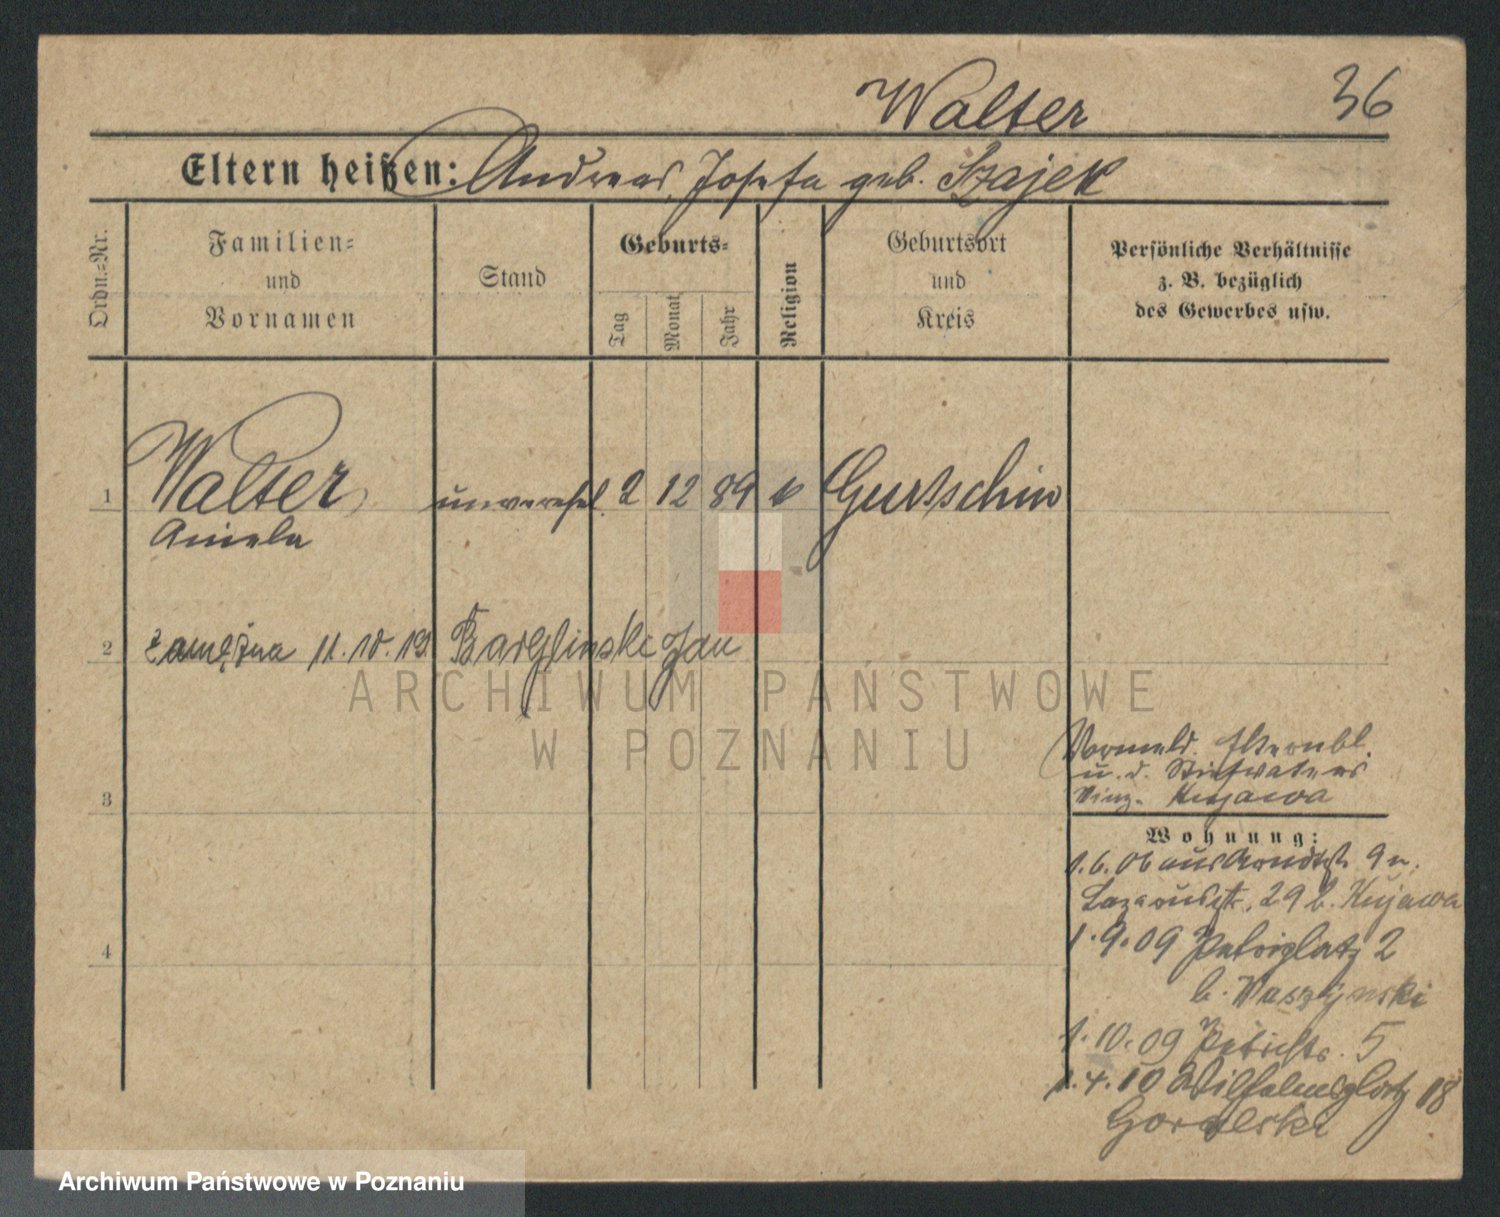 Walter
36
Eltern heißen: Andreas, Josefa geb. Szajek
Ordn.=Nr.
Familien=
und
Vornamen
Stand
Geburts=
Tag
Monat
Jahr
Religion
Geburtsort
und
Kreis
Persönliche Verhältnisse
z. B. bezüglich
des Gewerbes usw.
1 Walter unverehel. 2 12 89 k Gurtschin
Aniela
2 zamężna 11.10.19
Jan
ARCHIWUM PAŃSTWOWE
W POZNANIU
Vormeld.
u. d. Stiefvaters
3 Vinz. Kujawa
Wohnung:
1.6.06 aus
Lazarusstr. 29 b. Kujawa
4 1.9.09 Petriplatz 2
b. Waszynski
1.10.09 5
1.4.10 Wilhelmsplatz 18
Goralski
Archiwum Państwowe w Poznaniu